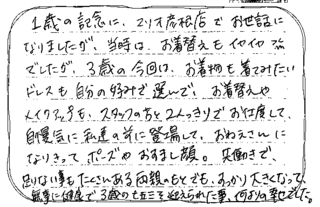 1歳の記念に、マリオ彦根店でお世話に
なりましたが、当時は、お着替えもイヤイヤ
でしたが、3歳の今回は、お着物も着てみたい
ドレスも自分の好みで選んで、お着替えや
メイクアップも、スタッフの方と2人っきりでお仕度して、
自慢気に私達の前に登場して、おねえさんに
なりきってポーズやおすまし顔。共働きで、
足りない事もたくさんある両親のもとでも、すっかり大きくなって、
無事に健康で3歳の七五三を迎えられた事、何よりの幸せでした。